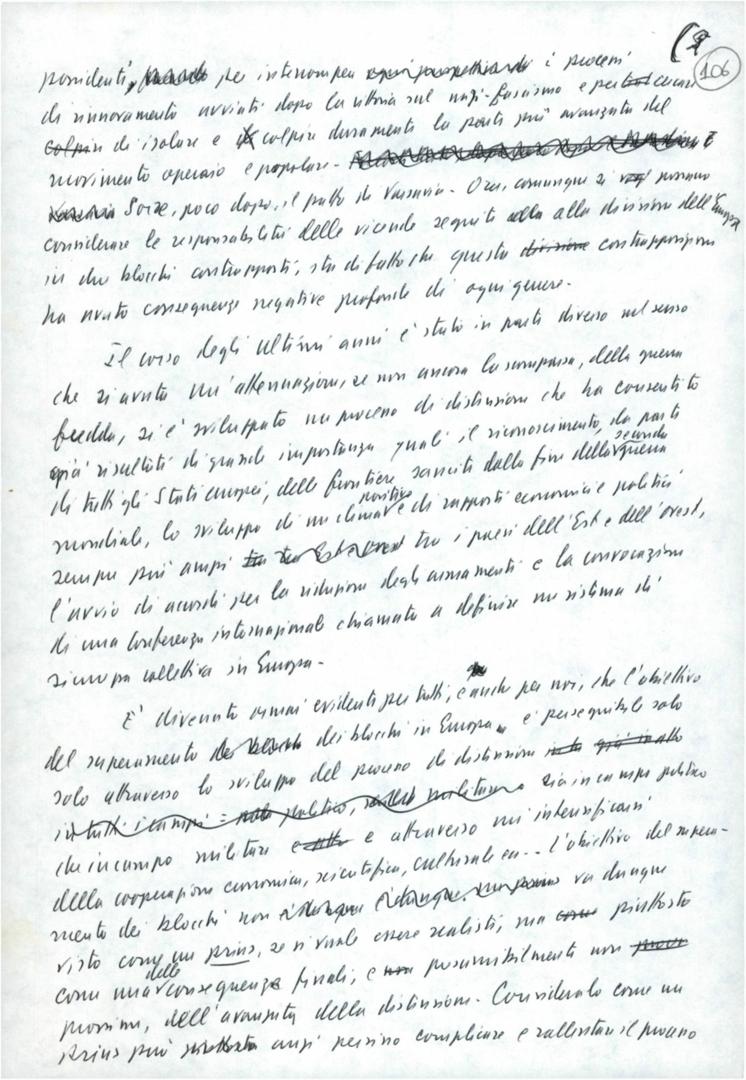 (2
106
possidenti, per interrompere i processi
di rinnovamento avviati dopo la vittoria sul nazi-fascismo e per cercare
di isolare e colpire duramente la parte più avanzata del
movimento operaio e popolare. E
Sorse, poco dopo, il patto di Varsavia. Ora, comunque si possano
considerare le responsabilità delle vicende seguite alla divisione dell'Europa
in due blocchi contrapposti, sta di fatto che questa contrapposizione
ha avuto conseguenze negative profonde di ogni genere.
Il corso degli ultimi anni è stato in parte diverso nel senso
che si è avuta un'attenuazione, se non ancora la scomparsa, della guerra
fredda, si è sviluppato un processo di distensione che ha consentito
già risultati di grande importanza quali il riconoscimento, da parte
di tutti gli Stati europei, delle frontiere sancite dalla fine della seconda guerra
mondiale, lo sviluppo di un clima positivo e di rapporti economici e politici
sempre più ampi tra i paesi dell'Est e dell'Ovest,
l'avvio di accordi per la riduzione degli armamenti e la convocazione
di una Conferenza internazionale chiamata a definire un sistema di
sicurezza collettiva in Europa.
E' divenuto ormai evidente per tutti, e anche per noi, che l'obiettivo
del superamento dei blocchi in Europa è perseguibile solo
solo attraverso lo sviluppo del processo di distensione
sia in campo politico
che in campo militare e attraverso un'intensificarsi
della cooperazione economica, scientifica, culturale ecc.. L'obiettivo del supera-
mento dei blocchi non va dunque
visto come un prius, se si vuole essere realisti, ma piuttosto
come una delle conseguenze finali, e presumibilmente non
prossima, dell'avanzata della distensione. Considerarlo come un
prius può anzi persino complicare e rallentare il processo